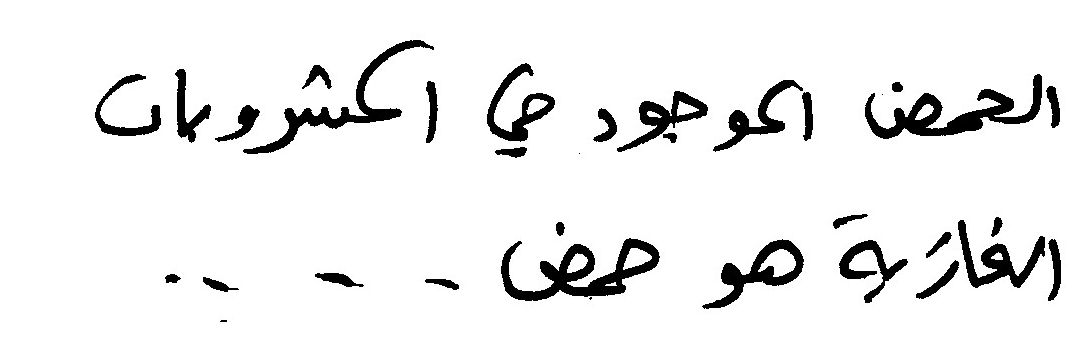 الحمض الموجود في المشروبات
الغازية هو حمض - - - ..